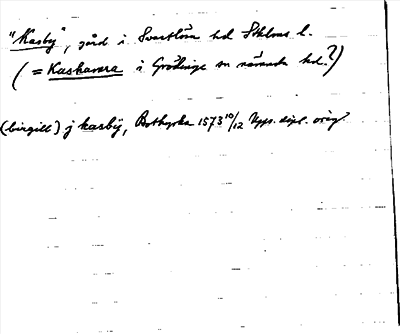 "Kasby", gård i Svartlösa hd Sthlms l.
(= Kaskarra i Grödinge sn nämnda hd.?)
(birgitt) j kasbÿ, Bothyrka 1573 10/12 Upps. dipl. orig